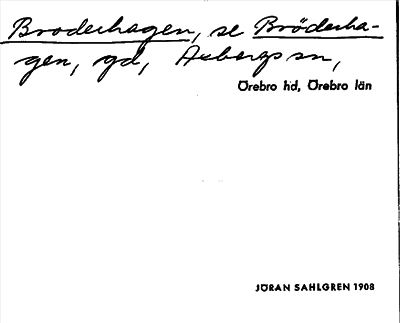 Broderhagen, se Bröderha-
gen, gd, Axbergs sn,
Örebro hd, Örebro län
JÖRAN SAHLGREN 1908